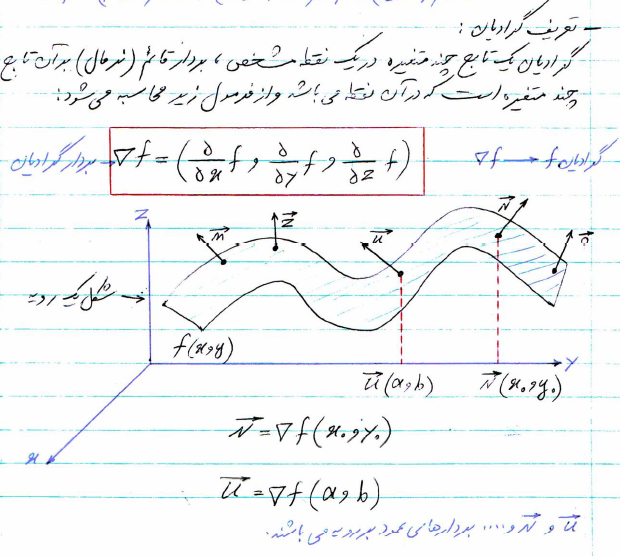 – تعریف گرادیان :
گرادیان یک تابع چند متغیره در یک نقطه مشخص ، بردار قائم (نرمال) بر آن تابع
چند متغیره است که در آن نقطه می باشد و از فرمول زیر محاسبه می شود :
گرادیان f → ∇f
∇f = (∂/∂x f , ∂/∂y f , ∂/∂z f) ← بردار گرادیان
Z
M⃗
Z⃗
u⃗
N⃗
شکل یک رویه →
f(x,y)
Y
u⃗(a,b)
N⃗(x₀,y₀)
x
N⃗ = ∇f(x₀,y₀)
u⃗ = ∇f(a,b)
u⃗ و N⃗ و .... بردارهای عمود بر رویه می باشند.